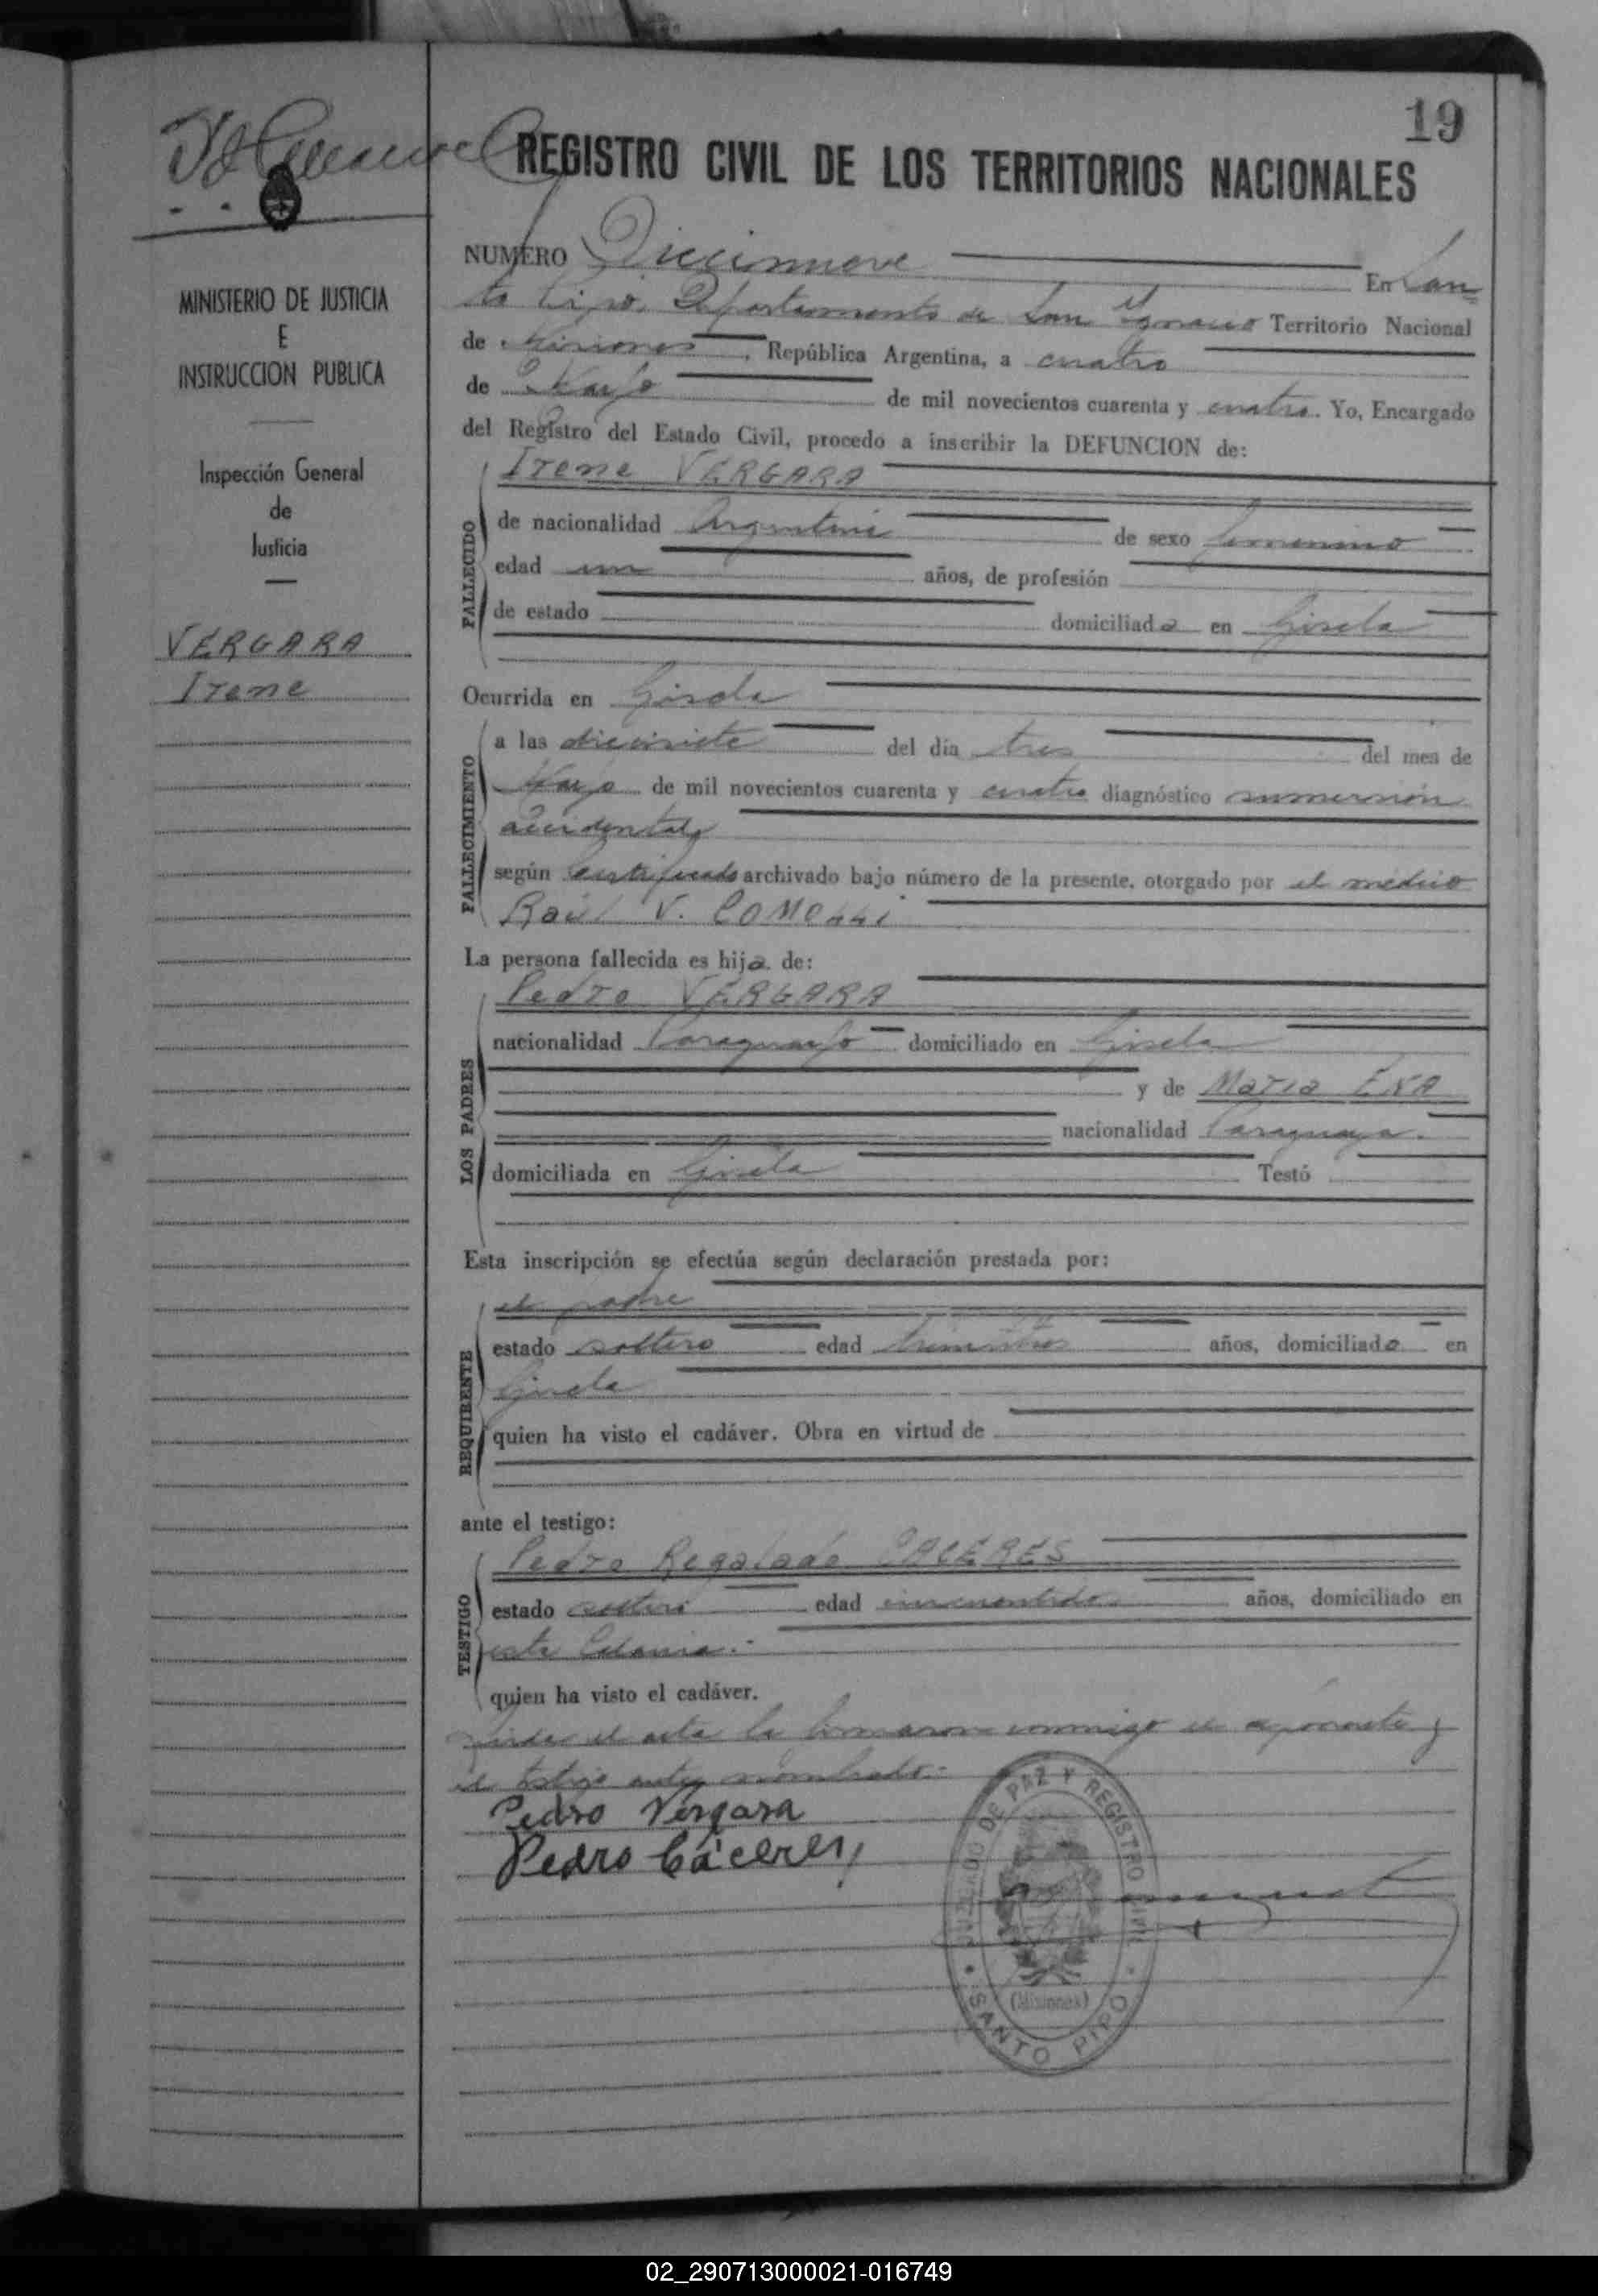 19
REGISTRO CIVIL DE LOS TERRITORIOS NACIONALES
MINISTERIO DE JUSTICIA
E
INSTRUCCION PUBLICA
Inspección General
de
Justicia
VERGARA
Irene
NUMERO Diecinueve En San=
to Pipó, Departamento de San Ignacio Territorio Nacional
de Misiones, República Argentina, a cuatro
de Mayo de mil novecientos cuarenta y cuatro. Yo, Encargado
del Registro del Estado Civil, procedo a inscribir la DEFUNCION de:
FALLECIDO
Irene VERGARA
de nacionalidad Argentina de sexo femenino
edad un años, de profesión
de estado domiciliada en Gisela
Ocurrida en Gisela
FALLECIMIENTO
a las diecisiete del día tres del mes de
Mayo de mil novecientos cuarenta y cuatro diagnóstico inmersión
accidental,
según certificado archivado bajo número de la presente, otorgado por el médico
Raúl V.
La persona fallecida es hija de:
LOS PADRES
Pedro VERGARA
nacionalidad Paraguayo domiciliado en Gisela
y de Maria
nacionalidad Paraguaya.
domiciliada en Gisela Testó
Esta inscripción se efectúa según declaración prestada por:
REQUIRENTE
el padre
estado soltero edad años, domiciliado en
Gisela
quien ha visto el cadáver. Obra en virtud de
ante el testigo:
TESTIGO
Pedro Regalado CACERES
estado soltero edad años, domiciliado en
esta Colonia.-
quien ha visto el cadáver.
el acta la firmaron conmigo el exponente y
el testigo antes nombrado.-
Pedro Vergara
Pedro Cáceres
JUZGADO DE PAZ Y REGISTRO CIVIL
(Misiones)
SANTO PIPO
02_290713000021-016749